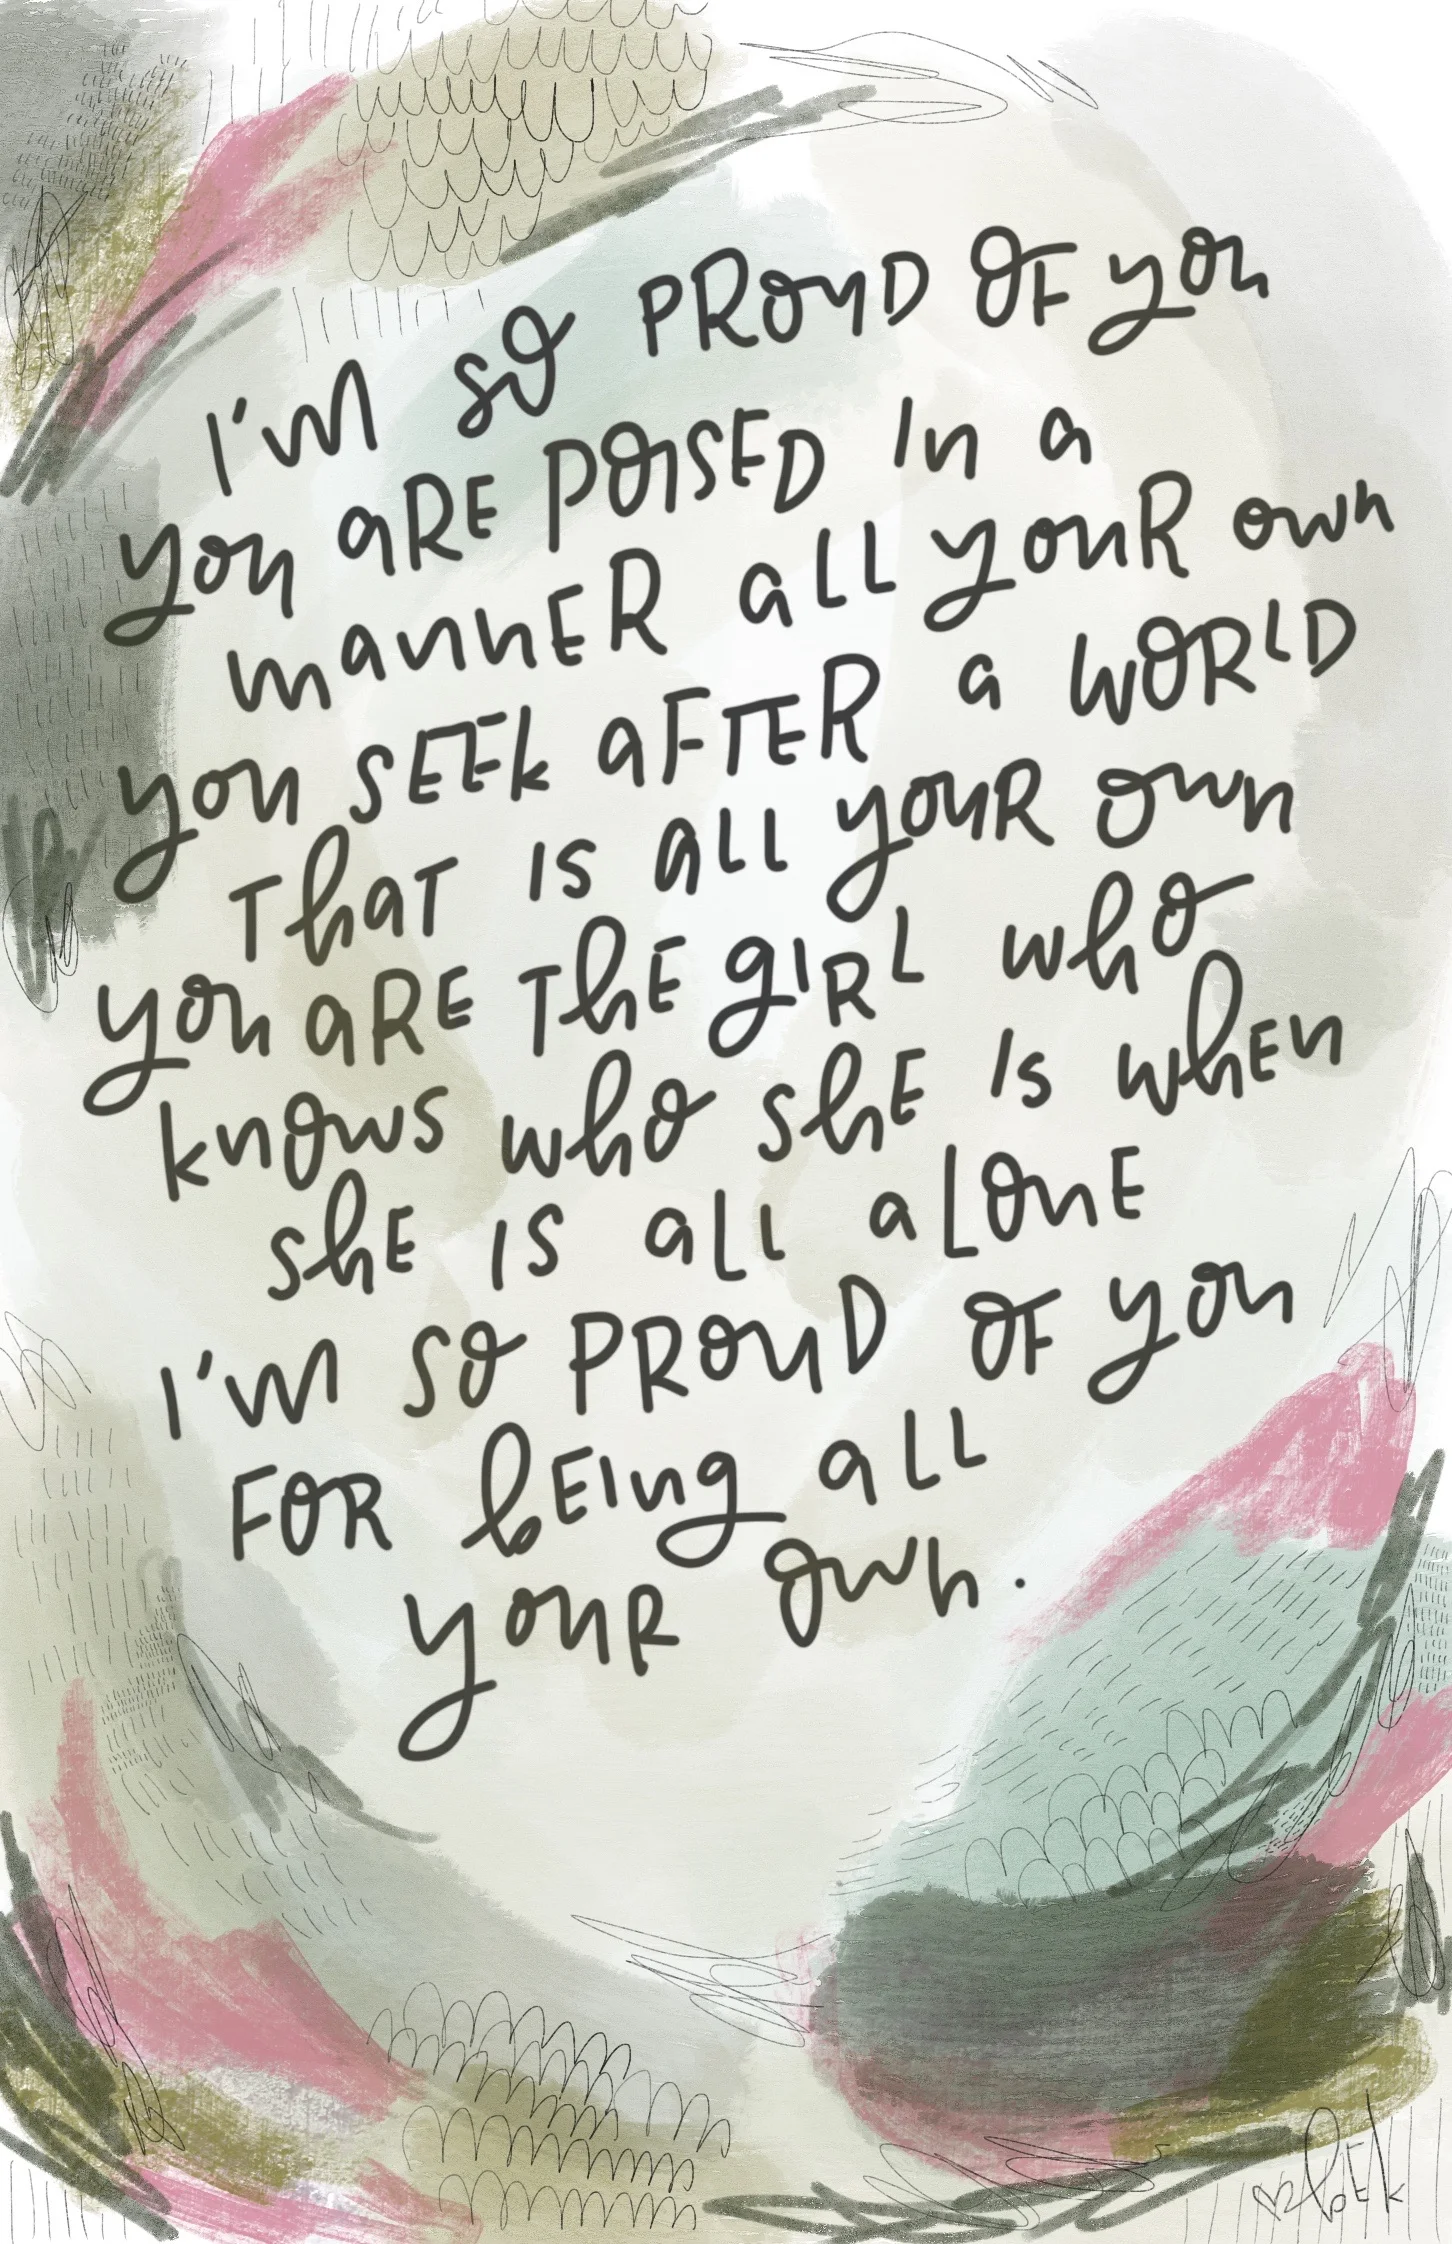 I'm so PROUD OF you
you aRE POISED In a
mannER aLL youR own
you SEEk aFTER a WORLD
ThaT IS aLL youR own
you aRE ThE gIRL who
knows who shE Is whEn
shE IS aLL aLOnE
I'm so PROUD OF you
FOR bEIng aLL
youR own.
bEk